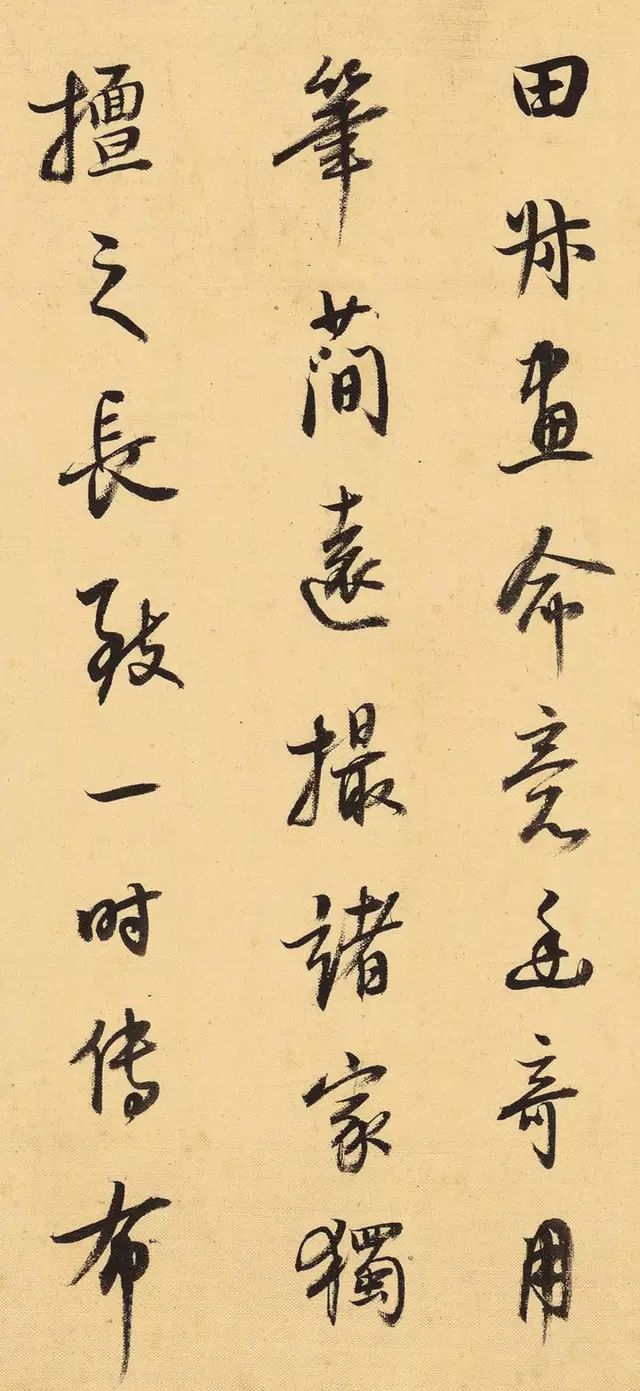 田叔畫命意奇用
筆簡遠撮諸家獨
擅之長致一時傳布